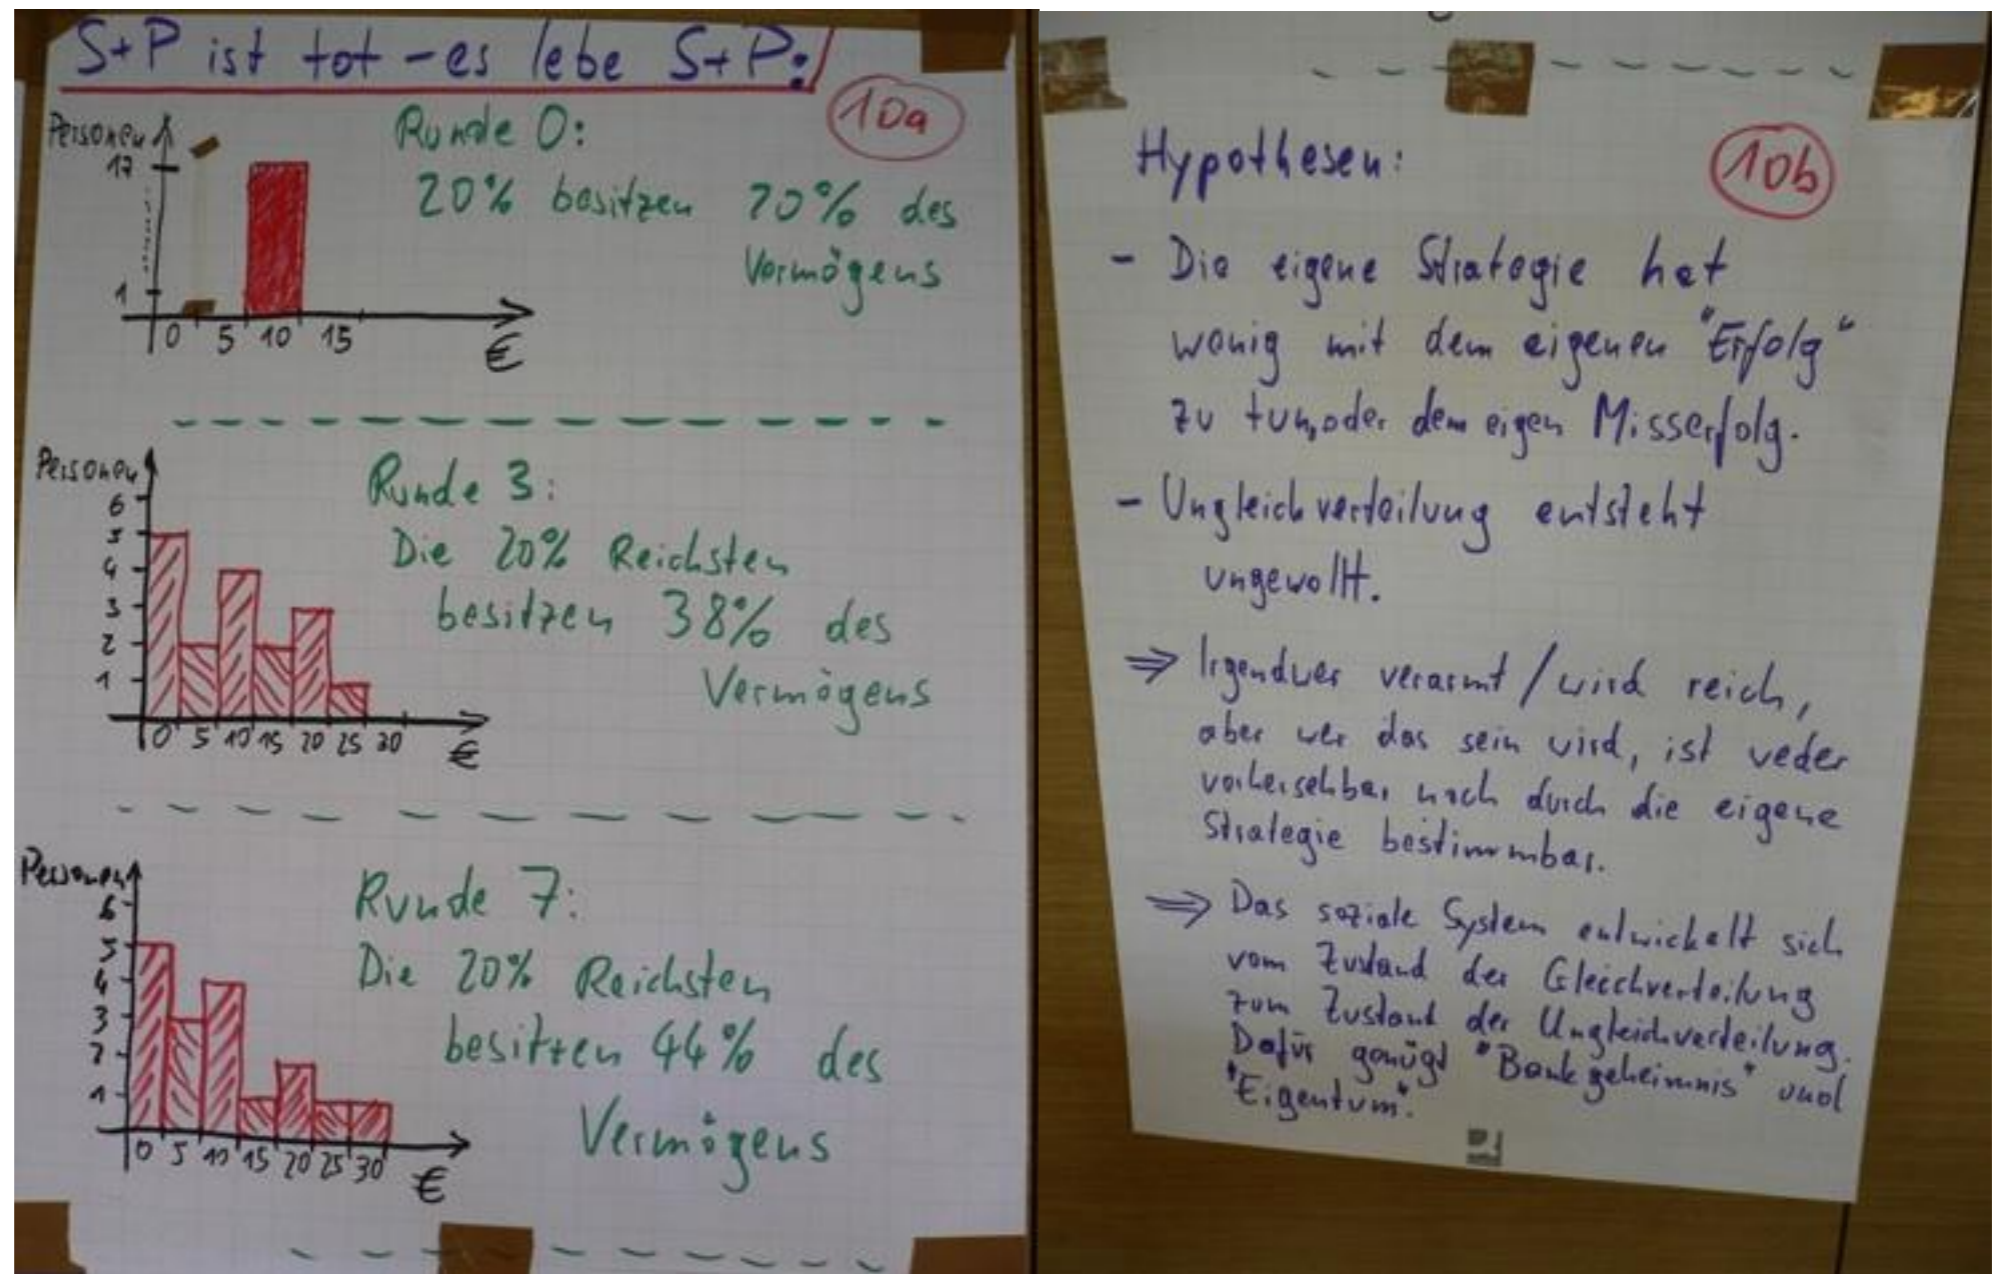 S+P ist tot - es lebe S+P!
10a
Personen
Runde 0:
17
20% besitzen 20% des
Vermögens
1
0 5 10 15
€
Personen
Runde 3:
6
5
4
3
2
1
Die 20% Reichsten
besitzen 38% des
Vermögens
0 5 10 15 20 25 30
€
Personen
Runde 7:
6
5
4
3
2
1
Die 20% Reichsten
besitzen 44% des
Vermögens
0 5 10 15 20 25 30
€
Hypothesen:
10b
- Die eigene Strategie hat
wenig mit dem eigenen "Erfolg"
zu tun, oder dem eigen Misserfolg.
- Ungleichverteilung entsteht
ungewollt.
⇒ Irgendwer verarmt / wird reich,
aber wer das sein wird, ist weder
vorhersehbar noch durch die eigene
Strategie bestimmbar.
⇒ Das soziale System entwickelt sich
vom Zustand der Gleichverteilung
zum Zustand der Ungleichverteilung.
Dafür genügt "Bankgeheimnis" und
"Eigentum".